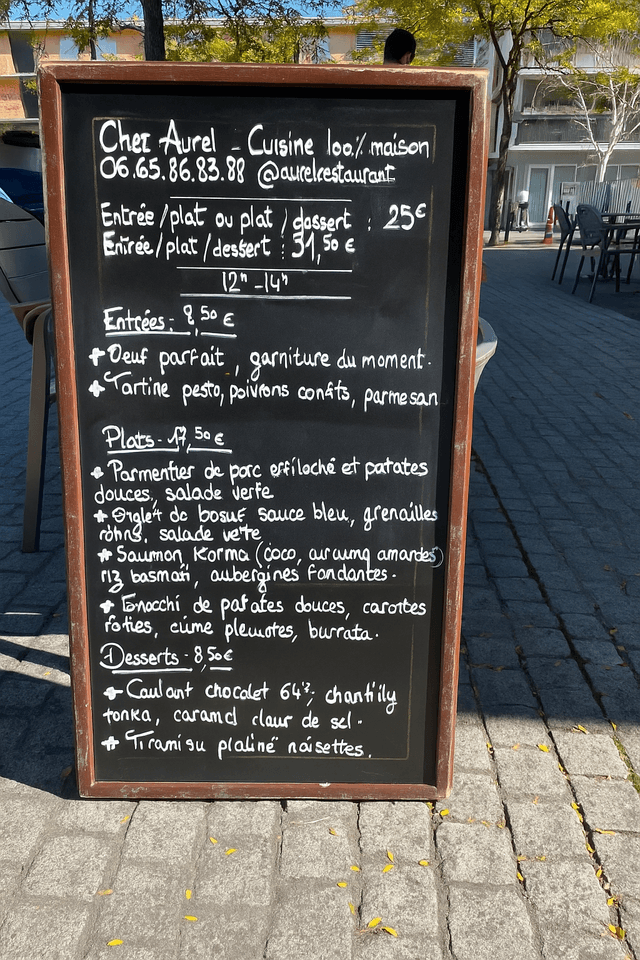 Chez Aurel - Cuisine 100% maison
06.65.86.83.88 @aurelrestaurant
Entrée/plat ou plat/dossert : 25€
Entrée/plat/dessert : 31,50 €
12h-14h
Entrées - 8,50 €
+ Oeuf parfait, garniture du moment.
+ Tartine pesto, poivrons confits, parmesan
Plats - 17,50 €
+ Parmentier de porc effiloché et patates
douces, salade verte
+ de bœuf sauce bleu, grenailles
salade vete
+ Saumon Korma (coco, amandes)
riz basmati, aubergines fondantes.
+ de patates douces, carottes
roties, burrata.
Desserts - 8,50€
+ Coulant chocolat 64%, chantilly
tonka, caramel de sel.
+ Tiramisu praliné noisettes.